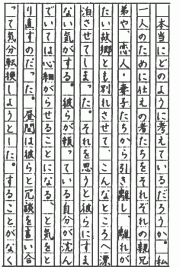 本当にどのように考えているだろうか。私
一人のために仕えの者たちをそれぞれの親兄
弟や、恋人・妻子たちから引き離し、離れが
たい故郷とも別れさせて、こんなところへ漂
泊させてしまった。それを思うと彼らにすま
ない気がする。彼らが頼っている自分が沈ん
でいては心細がらせることになる、と気をと
り直すのだった。昼間は彼らと冗談を言い合
って気分転換しようとした。することがなく